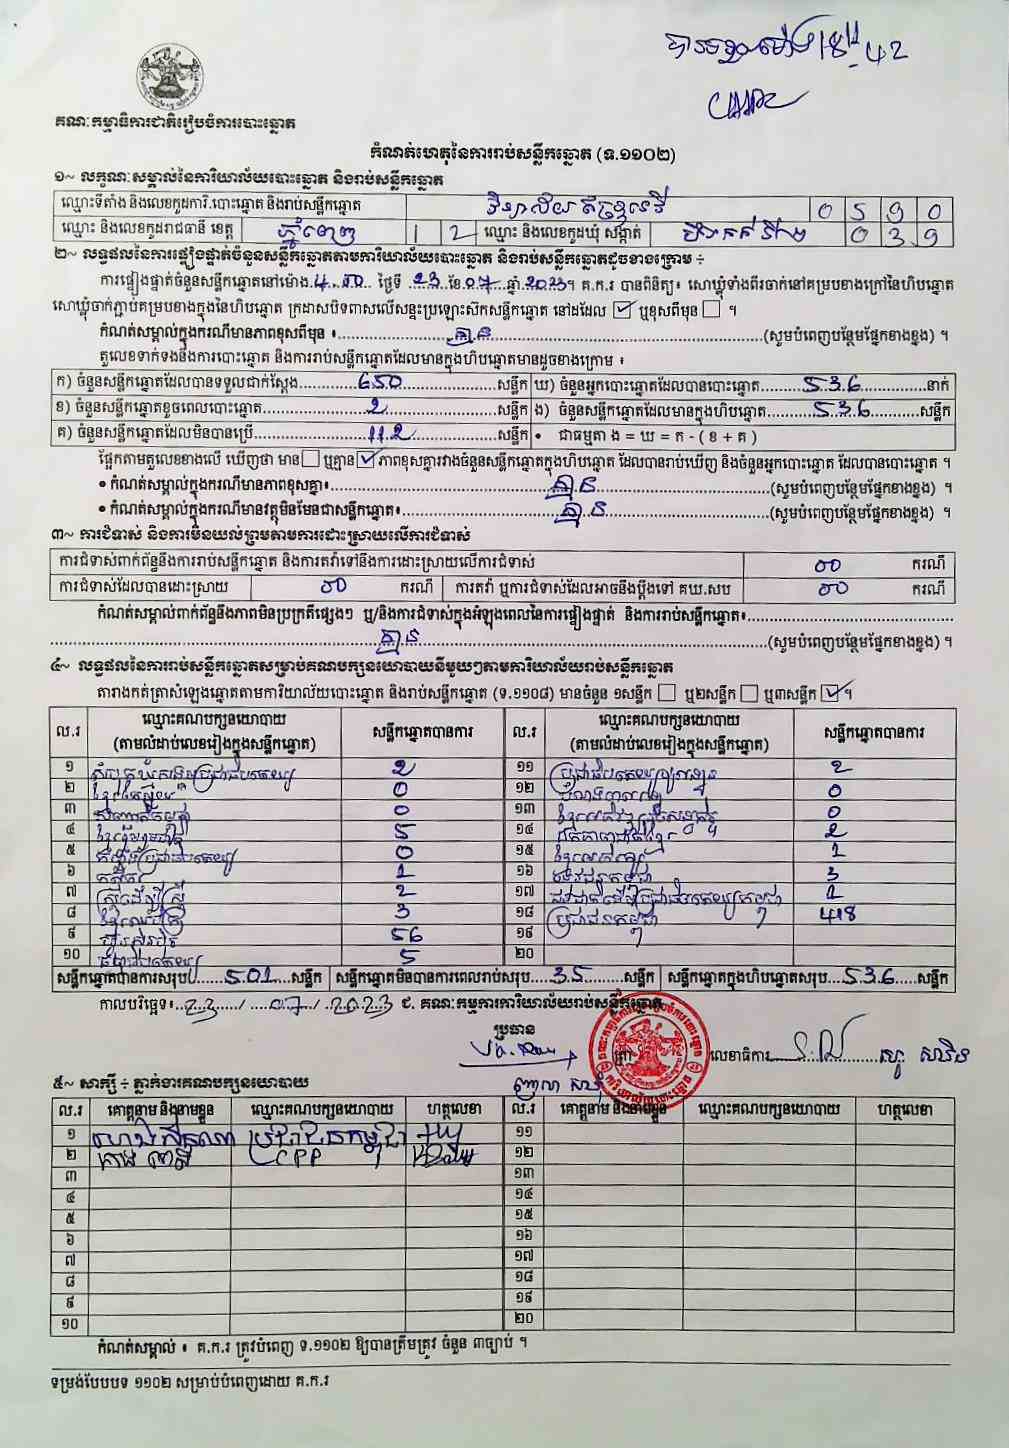 18 42
គណៈកម្មាធិការជាតិរៀបចំការបោះឆ្នោត
កំណត់ហេតុនៃការរាប់សន្លឹកឆ្នោត (ទ.១១០២)
១~ លក្ខណៈសម្គាល់នៃការិយាល័យបោះឆ្នោត និងរាប់សន្លឹកឆ្នោត
ឈ្មោះទីតាំង និងលេខកូដការិ.បោះឆ្នោត និងរាប់សន្លឹកឆ្នោត វិទ្យាល័យ ឥន្ទ្រទេវី 0 5 9 0
ឈ្មោះ និងលេខកូដរាជធានី ខេត្ត ភ្នំពេញ 1 2 ឈ្មោះ និងលេខកូដឃុំ សង្កាត់ បឹងកក់ទី២ 0 3 9
២~ លទ្ធផលនៃការផ្ទៀងផ្ទាត់ចំនួនសន្លឹកឆ្នោតតាមការិយាល័យបោះឆ្នោត និងរាប់សន្លឹកឆ្នោតដូចខាងក្រោម ÷
ការផ្ទៀងផ្ទាត់ចំនួនសន្លឹកឆ្នោតនៅម៉ោង ថ្ងៃទី 23 ខែ 07 ឆ្នាំ 2023។ គ.ក.រ បានពិនិត្យ៖ សោឃ្លុំទាំងពីរចាក់នៅគម្របខាងក្រៅនៃហិបឆ្នោត
សោឃ្លុំចាក់ភ្ជាប់គម្របខាងក្នុងនៃហិបឆ្នោត ក្រដាសបិទពាសលើសន្ទះប្រឡោះស៊កសន្លឹកឆ្នោត នៅដដែល ☑ ឬខុសពីមុន ☐ ។
កំណត់សម្គាល់ក្នុងករណីមានភាពខុសពីមុន ៖ គ្មាន (សូមបំពេញបន្ថែមផ្នែកខាងខ្នង) ។
តួលេខទាក់ទងនឹងការបោះឆ្នោត និងការរាប់សន្លឹកឆ្នោតដែលមានក្នុងហិបឆ្នោតមានដូចខាងក្រោម ៖
ក) ចំនួនសន្លឹកឆ្នោតដែលបានទទួលជាក់ស្តែង 650 សន្លឹក ឃ) ចំនួនអ្នកបោះឆ្នោតដែលបានបោះឆ្នោត 536 នាក់
ខ) ចំនួនសន្លឹកឆ្នោតខូចពេលបោះឆ្នោត 2 សន្លឹក ង) ចំនួនសន្លឹកឆ្នោតដែលមានក្នុងហិបឆ្នោត 536 សន្លឹក
គ) ចំនួនសន្លឹកឆ្នោតដែលមិនបានប្រើ 112 សន្លឹក • ជាធម្មតា ង = ឃ = ក - ( ខ + គ )
ផ្អែកតាមតួលេខខាងលើ ឃើញថា មាន ☐ ឬគ្មាន ☑ ភាពខុសគ្នារវាងចំនួនសន្លឹកឆ្នោតក្នុងហិបឆ្នោត ដែលបានរាប់ឃើញ និងចំនួនអ្នកបោះឆ្នោត ដែលបានបោះឆ្នោត ។
• កំណត់សម្គាល់ក្នុងករណីមានភាពខុសគ្នា៖ គ្មាន (សូមបំពេញបន្ថែមផ្នែកខាងខ្នង) ។
• កំណត់សម្គាល់ក្នុងករណីមានវត្ថុមិនមែនជាសន្លឹកឆ្នោត៖ គ្មាន (សូមបំពេញបន្ថែមផ្នែកខាងខ្នង) ។
៣~ ការជំទាស់ និងការមិនយល់ព្រមតាមការដោះស្រាយលើការជំទាស់
ការជំទាស់ពាក់ព័ន្ធនឹងការរាប់សន្លឹកឆ្នោត និងការតវ៉ាទៅនឹងការដោះស្រាយលើការជំទាស់ 00 ករណី
ការជំទាស់ដែលបានដោះស្រាយ 00 ករណី ការតវ៉ា ឬការជំទាស់ដែលអាចនឹងប្តឹងទៅ គឃ.សប 00 ករណី
កំណត់សម្គាល់ពាក់ព័ន្ធនឹងភាពមិនប្រក្រតីផ្សេងៗ ឬ/និងការជំទាស់ក្នុងអំឡុងពេលនៃការផ្ទៀងផ្ទាត់ និងការរាប់សន្លឹកឆ្នោត៖
គ្មាន (សូមបំពេញបន្ថែមផ្នែកខាងខ្នង) ។
៤~ លទ្ធផលនៃការរាប់សន្លឹកឆ្នោតសម្រាប់គណបក្សនយោបាយនីមួយៗតាមការិយាល័យរាប់សន្លឹកឆ្នោត
តារាងកត់ត្រាសំឡេងឆ្នោតតាមការិយាល័យបោះឆ្នោត និងរាប់សន្លឹកឆ្នោត (ទ.១១០៨) មានចំនួន ១សន្លឹក ☐ ឬ២សន្លឹក ☐ ឬ៣សន្លឹក ☑ ។
ល.រ ឈ្មោះគណបក្សនយោបាយ (តាមលំដាប់លេខរៀងក្នុងសន្លឹកឆ្នោត) សន្លឹកឆ្នោតបានការ ល.រ ឈ្មោះគណបក្សនយោបាយ (តាមលំដាប់លេខរៀងក្នុងសន្លឹកឆ្នោត) សន្លឹកឆ្នោតបានការ
១ 2 ១១ 2
២ 0 ១២ 0
៣ 0 ១៣ 0
៤ 5 ១៤ 2
៥ 0 ១៥ 1
៦ កសិករ 1 ១៦ 3
៧ ស្ត្រីដើម្បីស្ត្រី 2 ១៧ 1
៨ 3 ១៨ ប្រជាជនកម្ពុជា 418
៩ ហ៊្វុនស៊ិនប៉ិច 56 ១៩
១០ 5 ២០
សន្លឹកឆ្នោតបានការសរុប 501 សន្លឹក សន្លឹកឆ្នោតមិនបានការពេលរាប់សរុប 35 សន្លឹក សន្លឹកឆ្នោតក្នុងហិបឆ្នោតសរុប 536 សន្លឹក
កាលបរិច្ឆេទ៖ 23 / 07 / 2023 ជ. គណៈកម្មការការិយាល័យរាប់សន្លឹកឆ្នោត
ប្រធាន
លេខាធិការ
៥~ សាក្សី ÷ ភ្នាក់ងារគណបក្សនយោបាយ
ល.រ គោត្តនាម និងនាមខ្លួន ឈ្មោះគណបក្សនយោបាយ ហត្ថលេខា ល.រ គោត្តនាម និងនាមខ្លួន ឈ្មោះគណបក្សនយោបាយ ហត្ថលេខា
១ ប្រជាជនកម្ពុជា ១១
២ CPP ១២
៣ ១៣
៤ ១៤
៥ ១៥
៦ ១៦
៧ ១៧
៨ ១៨
៩ ១៩
១០ ២០
កំណត់សម្គាល់ ៖ គ.ក.រ ត្រូវបំពេញ ទ.១១០២ ឱ្យបានត្រឹមត្រូវ ចំនួន ៣ច្បាប់ ។
ទម្រង់បែបបទ ១១០២ សម្រាប់បំពេញដោយ គ.ក.រ